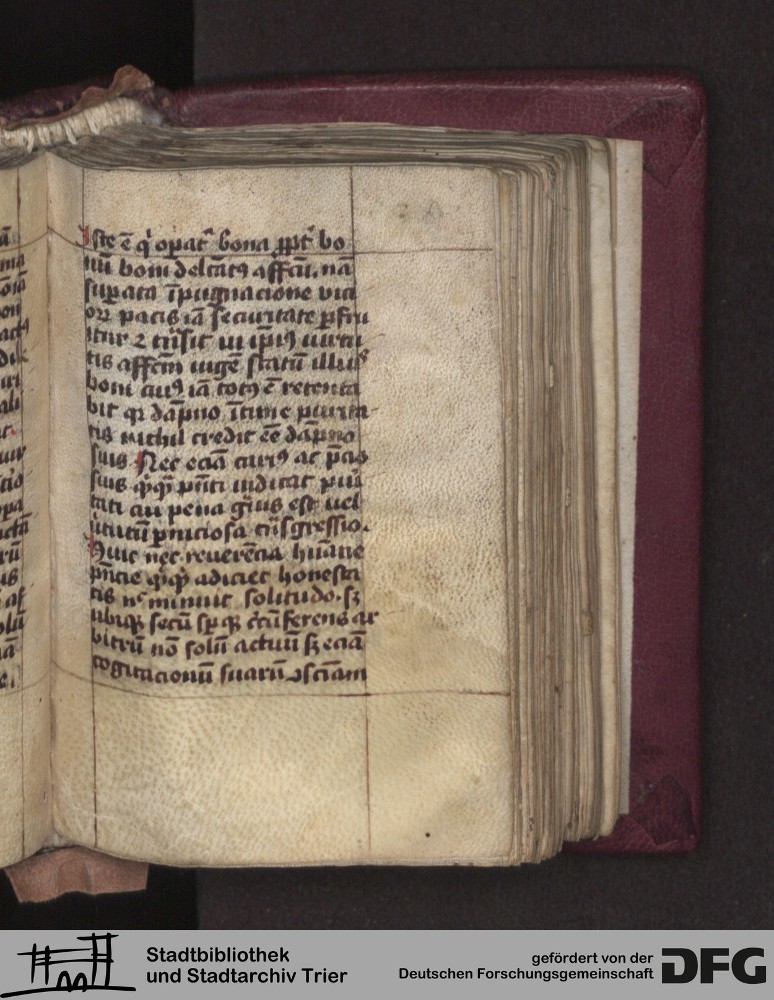 Iste ē q̇ oꝑatᷣ bona ꝓpt̄ bo
nū boni delc̄atꝰ affcū. nā
suꝑata īpugnacione vici
oꝝ pacis iā securitate ꝑfru
itur ⁊ trāsit in ip̄iꝰ uirtu
tis affcm̄ iugē statū illiꝰ
boni cuiꝰ iā totꝰ ē
bit qᷓ dāpno ītime puri
tis nichil credit eē dāpno
sius Nec eciā cariꝰ ac p̄cio
sius q̇cq̄ pn̄ti iudicat puri
tati cui pena gͣuis est uel
uirtutū ꝑniciosa trāsgressio.
Huic nec reuerēcia huane
pn̄cie q̇cq̄ adiciet honesta
tis nᶜ minuit solitudo. sꝫ
ubiqꝫ secū sꝑ qꝫ circūferens ar
bitrū nō solū actuū sꝫ eciā
cogitacionū suarū ꝯsciam
Stadtbibliothek
und Stadtarchiv Trier
gefördert von der
Deutschen Forschungsgemeinschaft
DFG